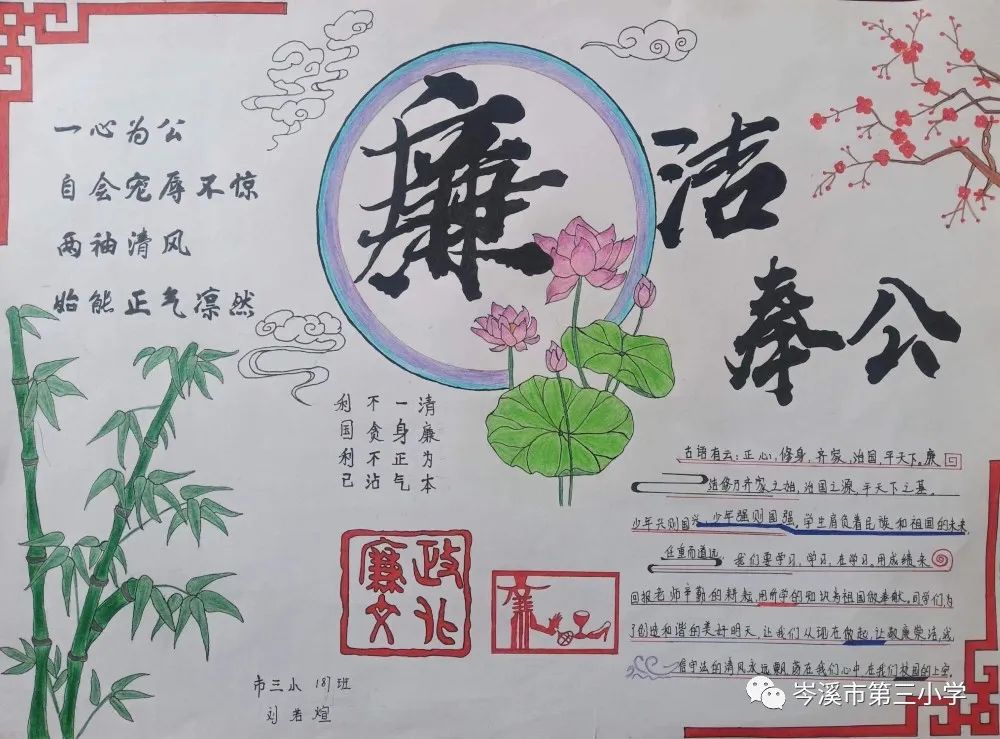 一心为公
自会宠辱不惊
两袖清风
始能正气凛然
廉洁
奉公
清廉为本
一身正气
不贪不沾
利国利己
古语有云:正心,修身,齐家,治国,平天下。廉
洁修乃齐家之始,治国之源,平天下之基。
少年兴则国兴,少年强则国强。学生肩负着民族和祖国的未来,
任重而道远 我们要学习,学习,在学习。用成绩来
回报老师辛勤的耕耘,用所学的知识为祖国做奉献。同学们,为
了创造和谐的美好明天,让我们从现在做起,让敬廉荣洁,诚
信守法的清风永远飘荡在我们心中 在我们校园的上空。
廉政
文化
廉
市三小 181班
刘若煊
岑溪市第三小学